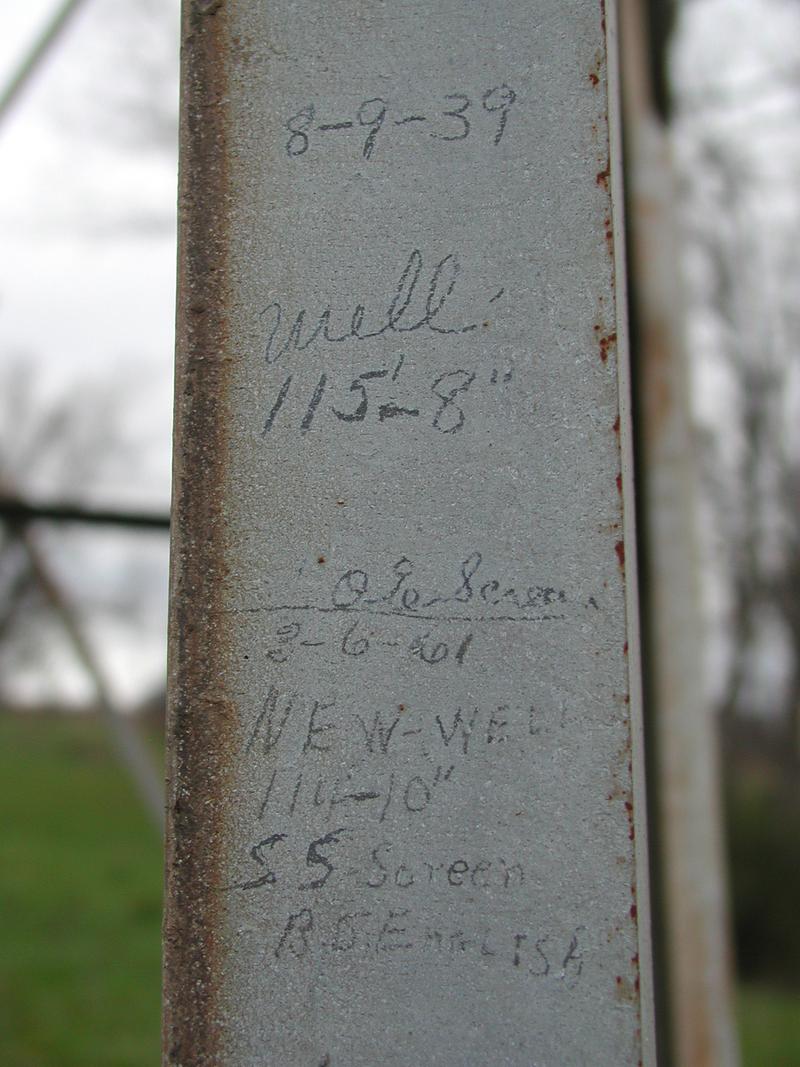 8-9-39
Well
115'-8"
Screen
2-6-61
NEW-WELL
114-10"
SS-Screen
B.G.ENGLISH